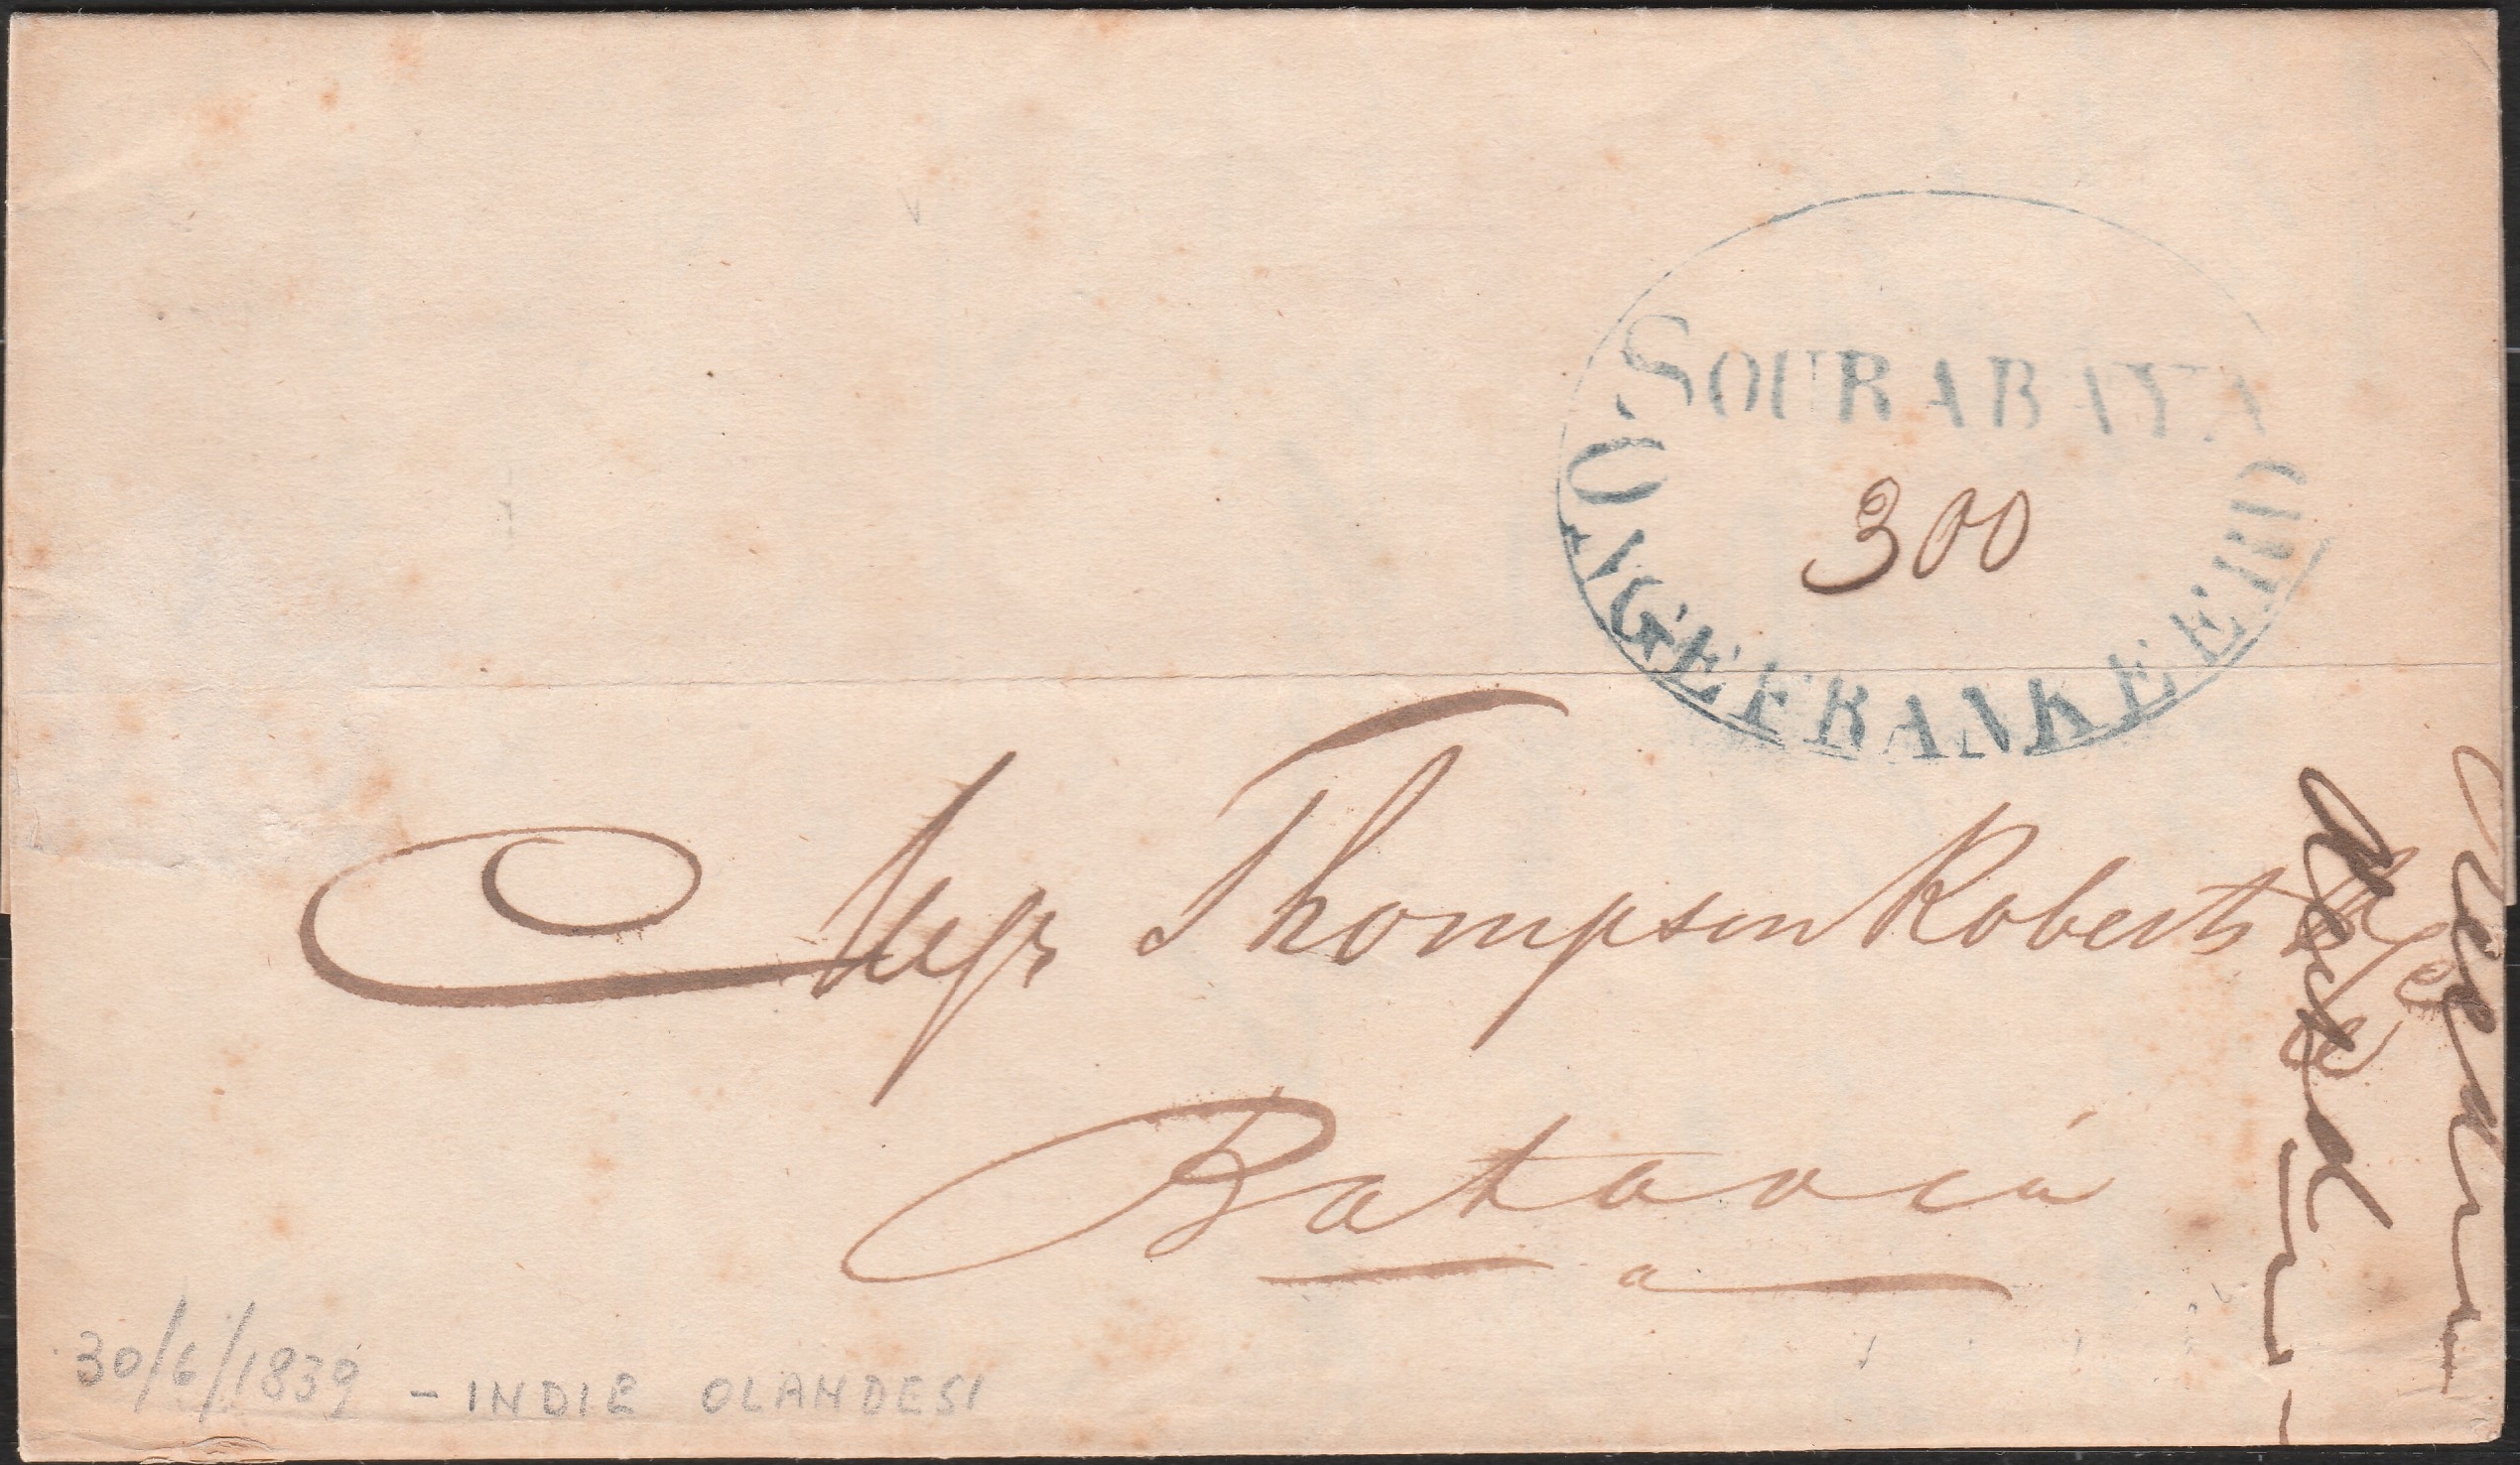 SOURABAYA
300
ONGEFRANKEERD
Thompson Roberts & Co
Batavia
30/6/1839 - INDIE OLANDESI